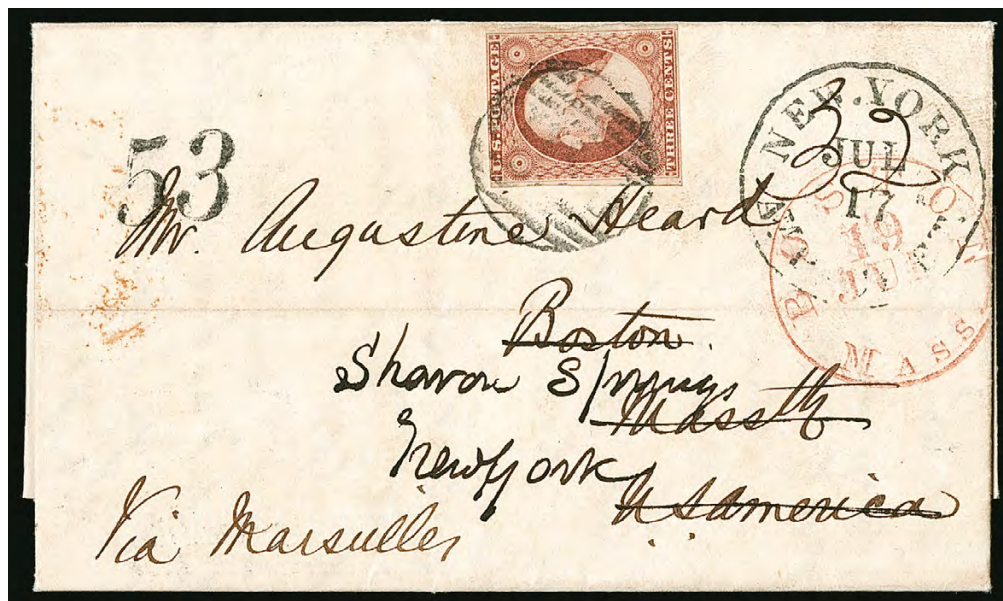 U.S. POSTAGE
THREE CENTS
53
33
NEW. YORK
JUL
17
BOSTON
19
JUL
MASS.
Mr. Augustine Heard
Boston.
Sharon Springs
Massth
New York
U S America
Via Marseilles